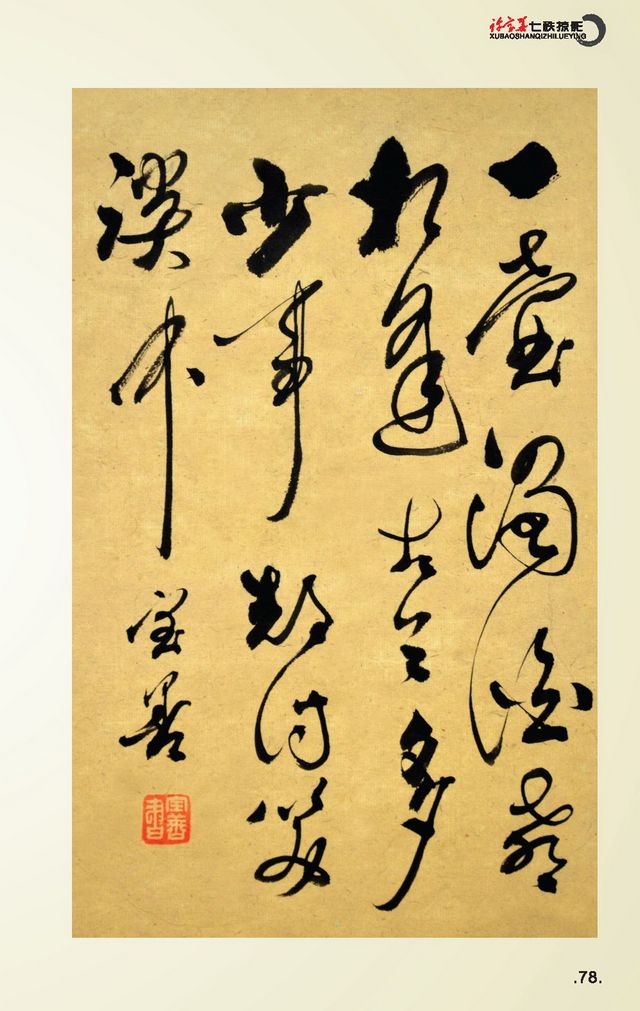 许宝善七秩掠影
XUBAOSHANQIZHILUEYING
一壺濁酒喜
相逢古今多
少事都付笑
談中
宝善
宝善書
.78.